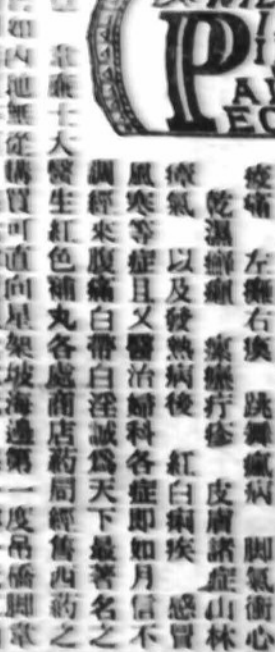 P
痠痛 左癱右瘓 跳舞瘋病 脚氣衝心
乾濕癬癩 瘰癧疔疹 皮膚諸症山林
瘴氣 以及發熱病後 紅白痢疾 感冒
風寒等症且又醫治婦科各症即如月信不
調經來腹痛白帶白淫誠爲天下最著名之
韋廉士大醫生紅色補丸各處商店葯局經售西葯之
內地無從購買可直向星架坡海邊第一度吊橋脚韋